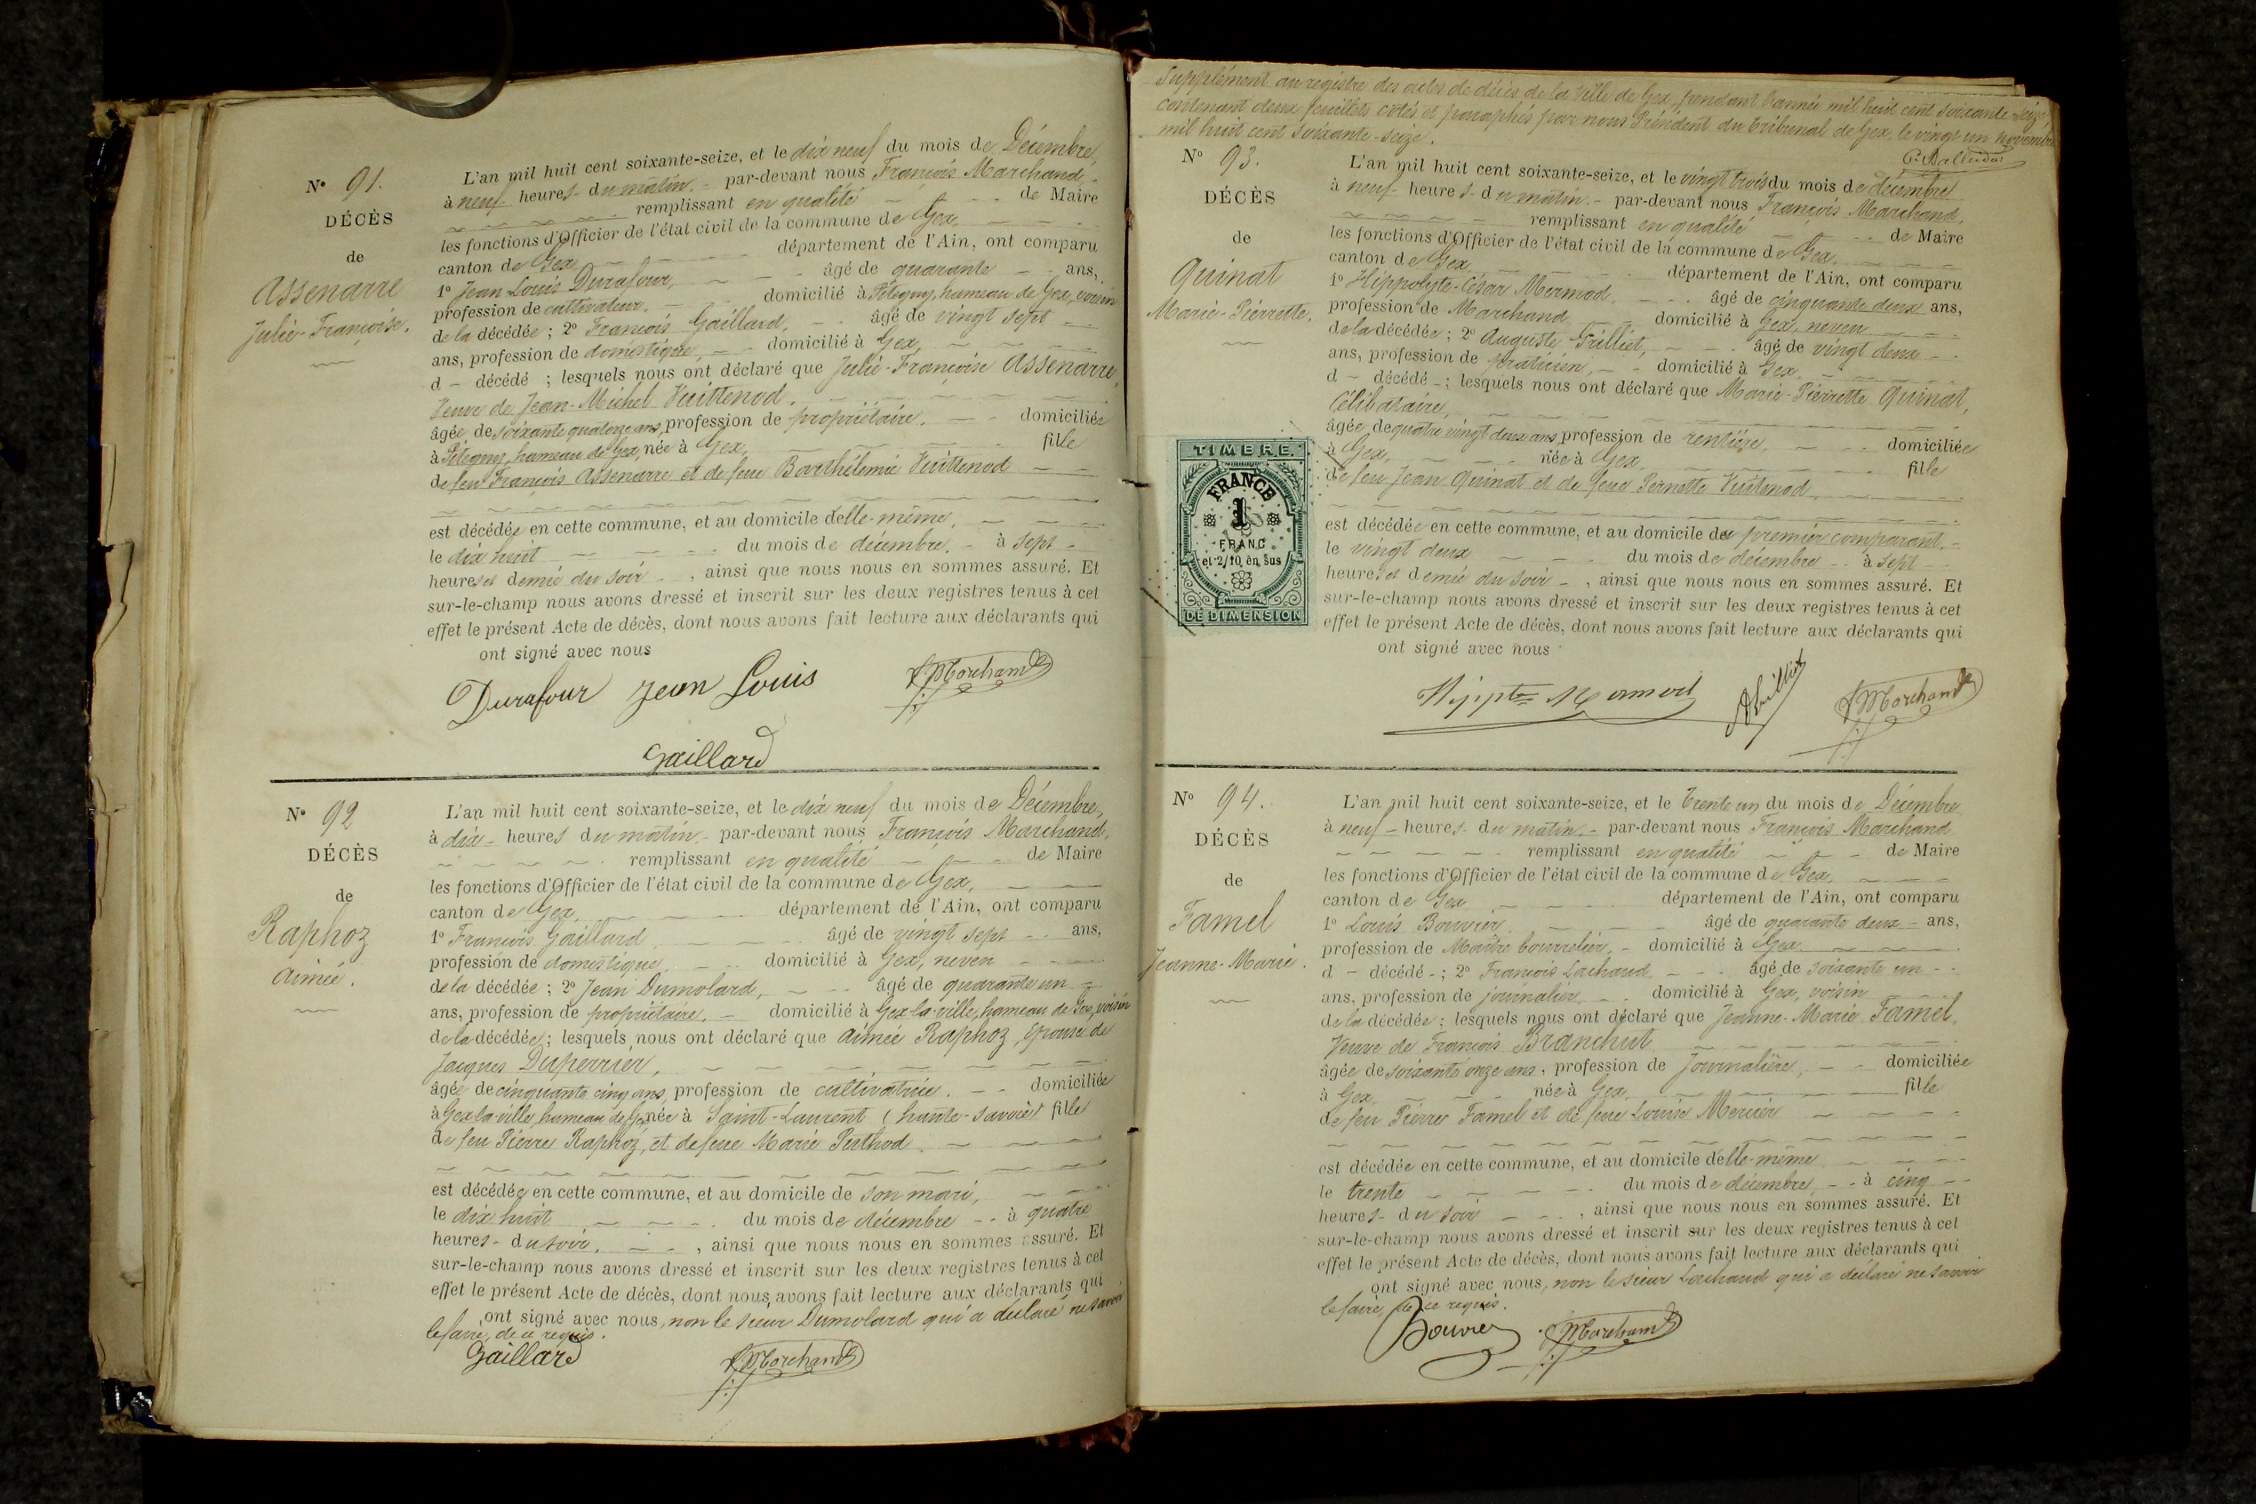 N° 91.
DÉCÈS
de
Assenarre
Julie-Françoise.
L'an mil huit cent soixante-seize, et le dix neuf du mois de Décembre,
à neuf heures du matin. par-devant nous François Marchand
remplissant en qualité de Maire
les fonctions d'Officier de l'état civil de la commune de Gex,
canton de Gex département de l'Ain, ont comparu
1° Jean Louis Durafour, âgé de quarante ans,
profession de cultivateur. domicilié à Pitegny, hameau de Gex, voisin
de la décédée ; 2° François Gaillard, âgé de vingt sept
ans, profession de domestique, domicilié à Gex,
d décédé ; lesquels nous ont déclaré que Julie-Françoise Assenarre,
Veuve de Jean-Michel Vuittenod.
âgée de soixante quatorze ans, profession de propriétaire. domiciliée
à Pitegny, hameau de Gex, née à Gex, fille
de feu François Assenarre et de feue Barthélemie Vuittenod
est décédée en cette commune, et au domicile d'elle-même.
le dix huit du mois de décembre. à sept
heures et demie du soir , ainsi que nous nous en sommes assuré. Et
sur-le-champ nous avons dressé et inscrit sur les deux registres tenus à cet
effet le présent Acte de décès, dont nous avons fait lecture aux déclarants qui
ont signé avec nous
Durafour Jean Louis Marchand
Gaillard
N° 92
DÉCÈS
de
Raphoz
Aimée.
L'an mil huit cent soixante-seize, et le dix neuf du mois de Décembre,
à dix heures du matin. par-devant nous François Marchand,
remplissant en qualité de Maire
les fonctions d'Officier de l'état civil de la commune de Gex,
canton de Gex, département de l'Ain, ont comparu
1° François Gaillard âgé de vingt sept ans,
profession de domestique domicilié à Gex, neveu
de la décédée ; 2° Jean Dumolard, âgé de quarante un
ans, profession de propriétaire. domicilié à Gex-la-ville, hameau de Gex, voisin
de la décédée ; lesquels nous ont déclaré que Aimée Raphoz, épouse de
Jacques Duperrier,
âgée de cinquante cinq ans, profession de cultivatrice. domiciliée
à Gex la ville, hameau de Gex née à Saint-Laurent (haute-savoie) fille
de feu Pierre Raphoz, et de feue Marie Puthod
est décédée en cette commune, et au domicile de son mari,
le dix huit du mois de décembre à quatre
heures du soir. , ainsi que nous nous en sommes assuré. Et
sur-le-champ nous avons dressé et inscrit sur les deux registres tenus à cet
effet le présent Acte de décès, dont nous avons fait lecture aux déclarants qui
ont signé avec nous, non le sieur Dumolard qui a déclaré ne savoir
le faire, de ce requis.
Gaillard Marchand
Supplément au registre des actes de décès de la Ville de Gex, pendant l'année mil huit cent soixante-seize
contenant deux feuillets cotés et paraphés par nous Président du tribunal de Gex, le vingt un novembre
mil huit cent soixante-seize.
N° 93.
DÉCÈS
de
Quinat
Marie-Pierrette.
TIMBRE
FRANCE
1
FRANC
et 2/10 en sus
DE DIMENSION
L'an mil huit cent soixante-seize, et le vingt trois du mois de décembre
à neuf heures du matin. par-devant nous François Marchand.
remplissant en qualité de Maire
les fonctions d'Officier de l'état civil de la commune de Gex.
canton de Gex département de l'Ain, ont comparu
1° Hippolyte-César Mermod. âgé de cinquante deux ans,
profession de Marchand domicilié à Gex, neveu
de la décédée ; 2° Auguste Grilliet, âgé de vingt deux
ans, profession de praticien, domicilié à Gex.
d décédé ; lesquels nous ont déclaré que Marie-Pierrette Quinat,
Célibataire,
âgée de quatre vingt deux ans, profession de rentière, domiciliée
à Gex, née à Gex, fille
de feu Jean Quinat et de feue Pernette Vuitenod.
est décédée en cette commune, et au domicile du premier comparant.
le vingt deux du mois de décembre à sept
heures et demie du soir , ainsi que nous nous en sommes assuré. Et
sur-le-champ nous avons dressé et inscrit sur les deux registres tenus à cet
effet le présent Acte de décès, dont nous avons fait lecture aux déclarants qui
ont signé avec nous
Hippte Mermod Marchand
N° 94.
DÉCÈS
de
Famel
Jeanne-Marie.
L'an mil huit cent soixante-seize, et le trente un du mois de Décembre
à neuf heures du matin. par-devant nous François Marchand
remplissant en qualité de Maire
les fonctions d'Officier de l'état civil de la commune de Gex,
canton de Gex département de l'Ain, ont comparu
1° Louis Bouvier âgé de quarante deux ans,
profession de Maître bourrelier, domicilié à Gex
d décédé ; 2° François Lachaud âgé de soixante un
ans, profession de journalier, domicilié à Gex, voisin
de la décédée ; lesquels nous ont déclaré que Jeanne-Marie Famel,
Veuve de François Branchut
âgée de soixante onze ans, profession de Journalière, domiciliée
à Gex née à Gex, fille
de feu Pierre Famel et de feue Louise Mercier
est décédée en cette commune, et au domicile d'elle-même
le trente du mois de décembre à cinq
heures du soir , ainsi que nous nous en sommes assuré. Et
sur-le-champ nous avons dressé et inscrit sur les deux registres tenus à cet
effet le présent Acte de décès, dont nous avons fait lecture aux déclarants qui
ont signé avec nous, non le sieur Lachaud qui a déclaré ne savoir
le faire, de ce requis.
Bouvier Marchand